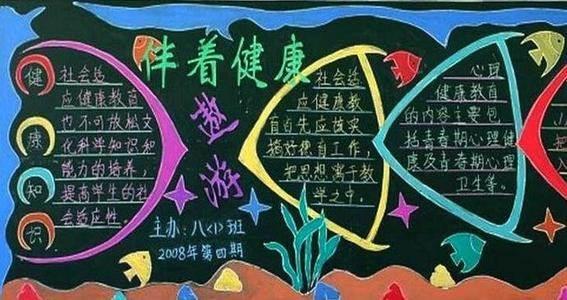 伴着健康
遨游
健
康
知
识
社会适
应健康教育
也不可放松文
化科学知识和
能力的培养，
提高学生的社
会适应性。
主办：八<1>班
2008年第四期
社会适
应健康教
育首先应该实
搞好健自工作，
把思想寓于教
学之中。
心理
健康教育
的内容主要包
括青春期心理健
康及青春期心理
卫生等。